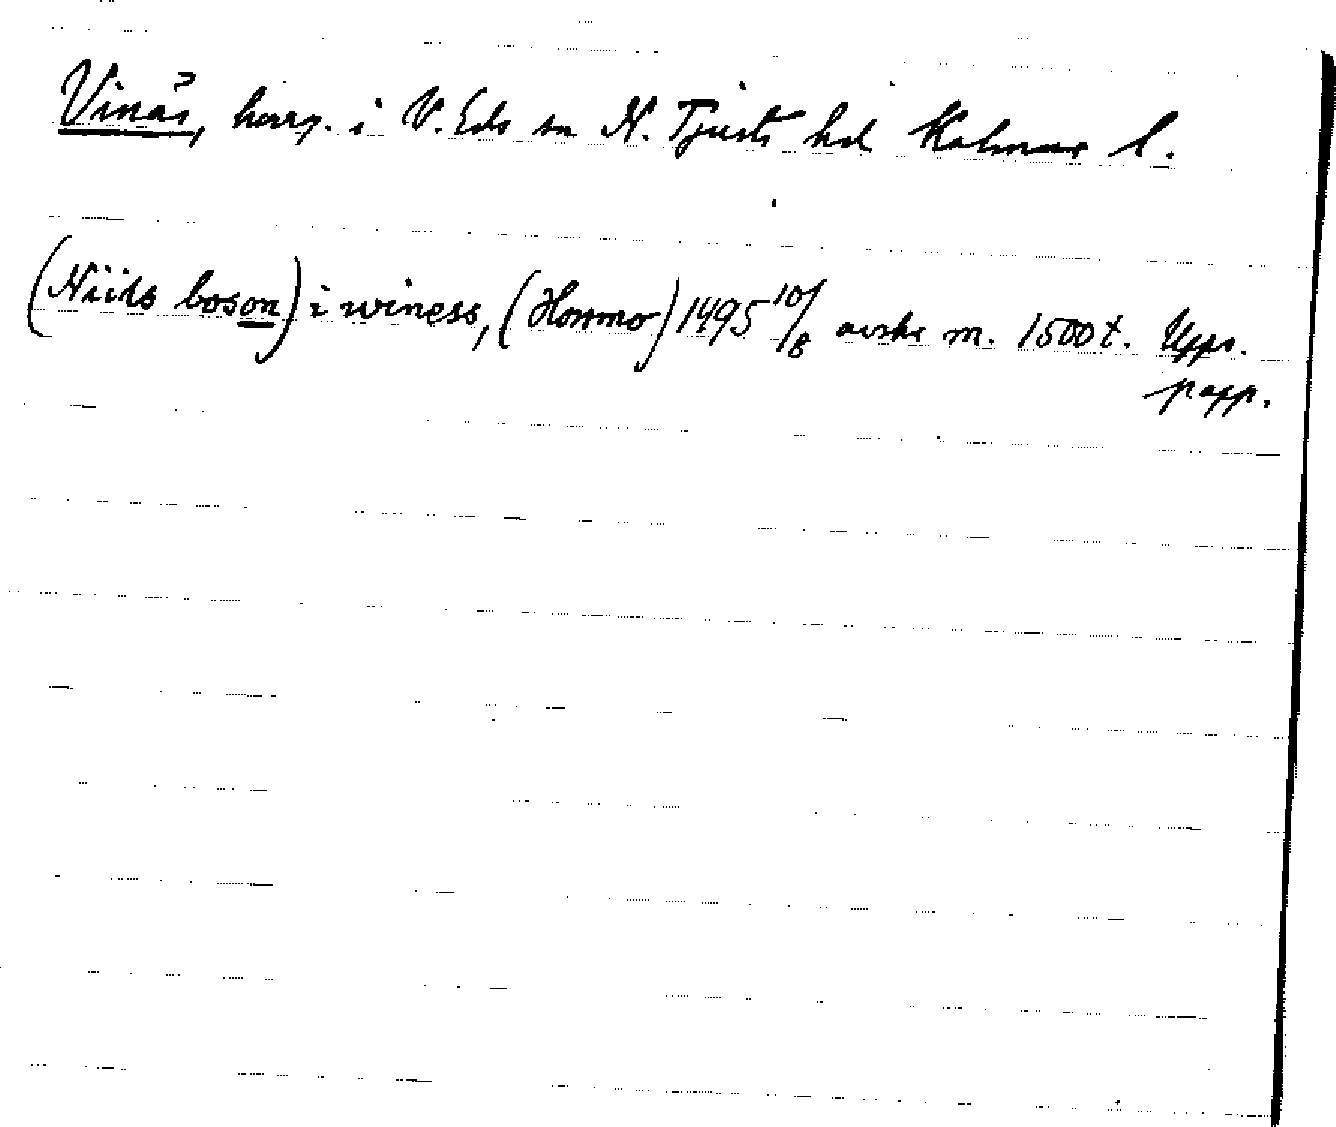 Vinäs, herrg. i V. Eds sn N. Tjusts hd Kalmar l.
(Niils boson) i winess, (Hommo) 1495 10/8 avskr m. 1500 t. Upps.
papp.